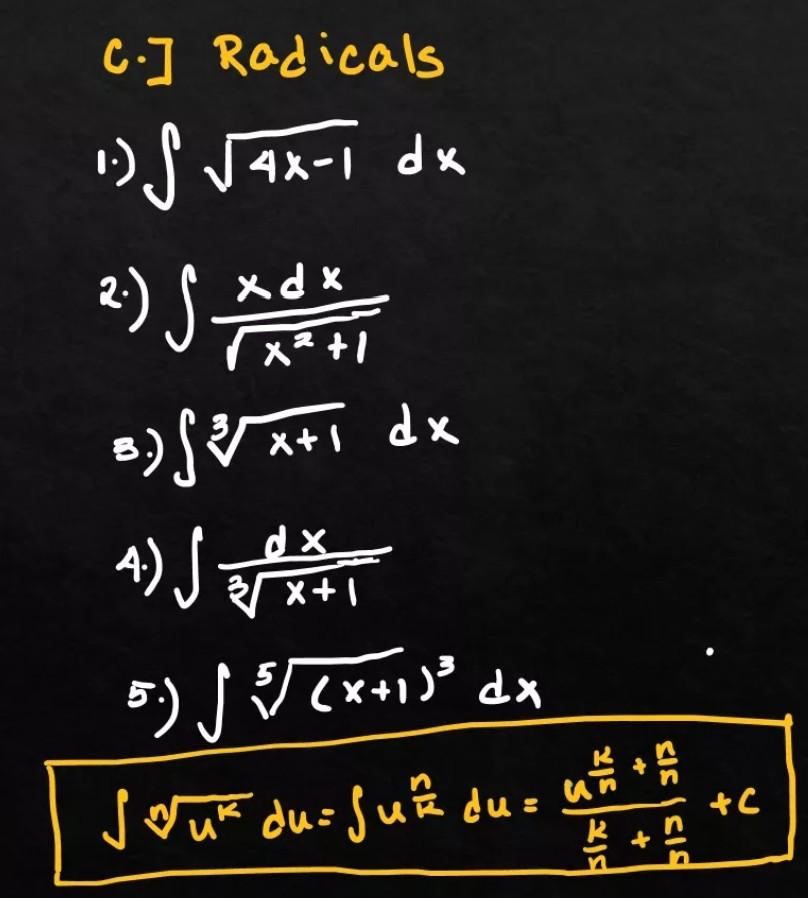 C.] Radicals
1.) ∫ √(4x-1) dx
2.) ∫ x dx / √(x²+1)
3.) ∫ ³√(x+1) dx
4.) ∫ dx / ³√(x+1)
5.) ∫ ⁵√((x+1)³) dx
∫ ⁿ√(u^k) du = ∫ u^(n/k) du = u^(k/n + n/n) / (k/n + n/n) + C